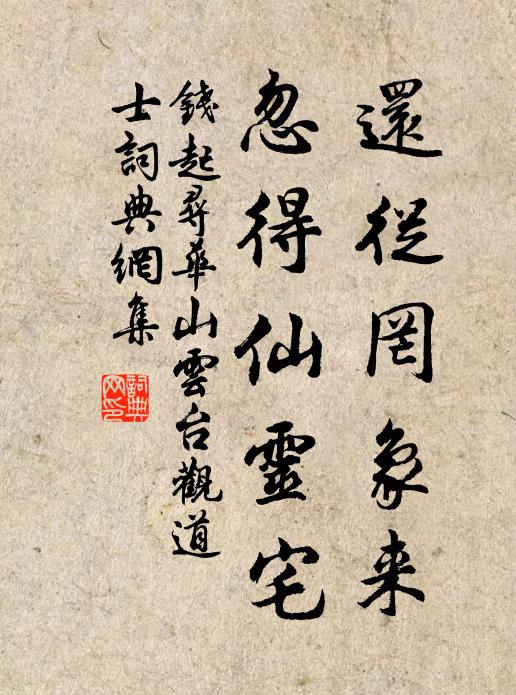 還從罔象来
忽得仙靈宅
錢起尋華山雲台觀道
士詞典網集
詞典网印